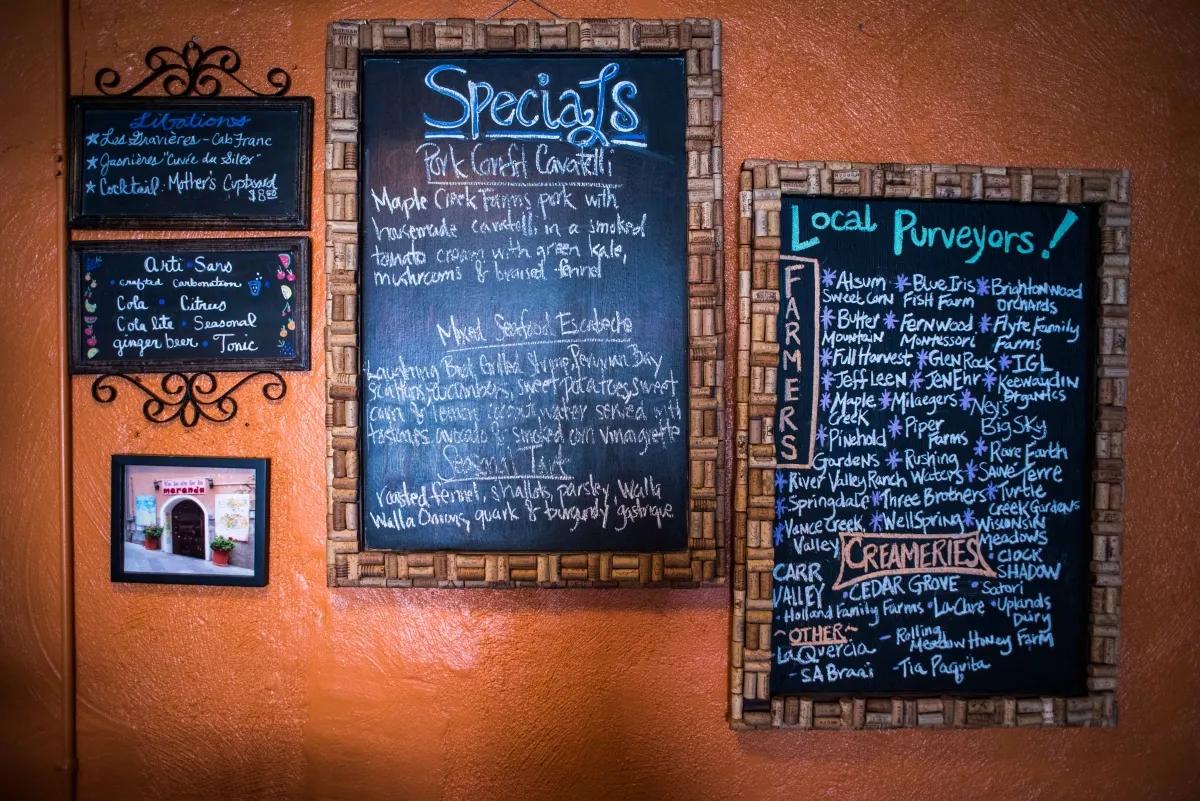 Libations
* Les Gravières - Cab Franc
* Jasnières "Cuvée du Silex"
* Cocktail: Mother's Cupboard
$8.00
Arti • Sans
• crafted carbonation •
Cola • Citrus
Cola lite • Seasonal
ginger beer • Tonic
meranda
Specials
Pork Confit Cavatelli
Maple Creek Farms pork with
housemade cavatelli, in a smoked
tomato cream with green kale,
mushrooms & braised fennel
Mixed Seafood Escabeche
Laughing Bird Grilled Shrimp, Peruvian Bay
Scallops, cucumbers, sweet potatoes, sweet
corn & lemon coconut water served with
tostones, avocado & smoked corn vinaigrette
Seasonal Tart
roasted fennel, shallots, parsley, Walla
Walla Onions, quark & burgundy gastrique.
Local Purveyors!
FARMERS
* Alsum * Blue Iris * Brightonwood
Sweet Corn Fish Farm orchards
* Butter * Fernwood * Flyte Family
Mountain Montessori Farms
* Full Harvest * Glen Rock * IGL
* Jeff Leen * JenEhr * Keewaydin
Organics
* Maple * Milaegers * Ney's
Creek Big Sky
* Pinehold * Piper
Gardens Farms * Rare Earth
* River Valley Ranch * Rushing Waters * Sauve Terre
* Springdale * Three Brothers * Turtle
Creek Gardens
* Vance Creek * WellSpring * Wisconsin
Valley Meadows
CREAMERIES
• CLOCK
SHADOW
CARR
VALLEY • CEDAR GROVE • Satori
• Holland Family Farms • LaClare • Uplands
Dairy
~OTHER~
- La Quercia - Rolling
Meadow Honey Farm
- SA Braai - Tia Paquita